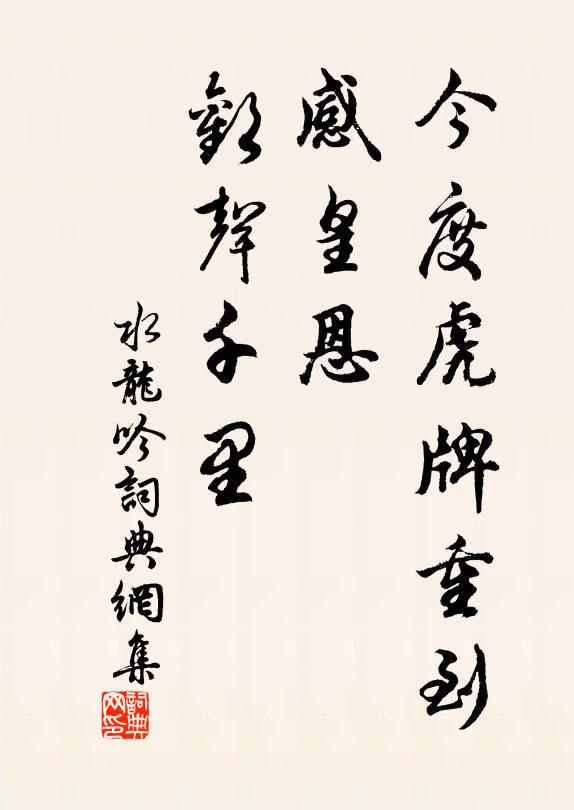 今度虎牌重到
感皇恩
歡聲千里
水龍吟詞典網集
詞典
网印